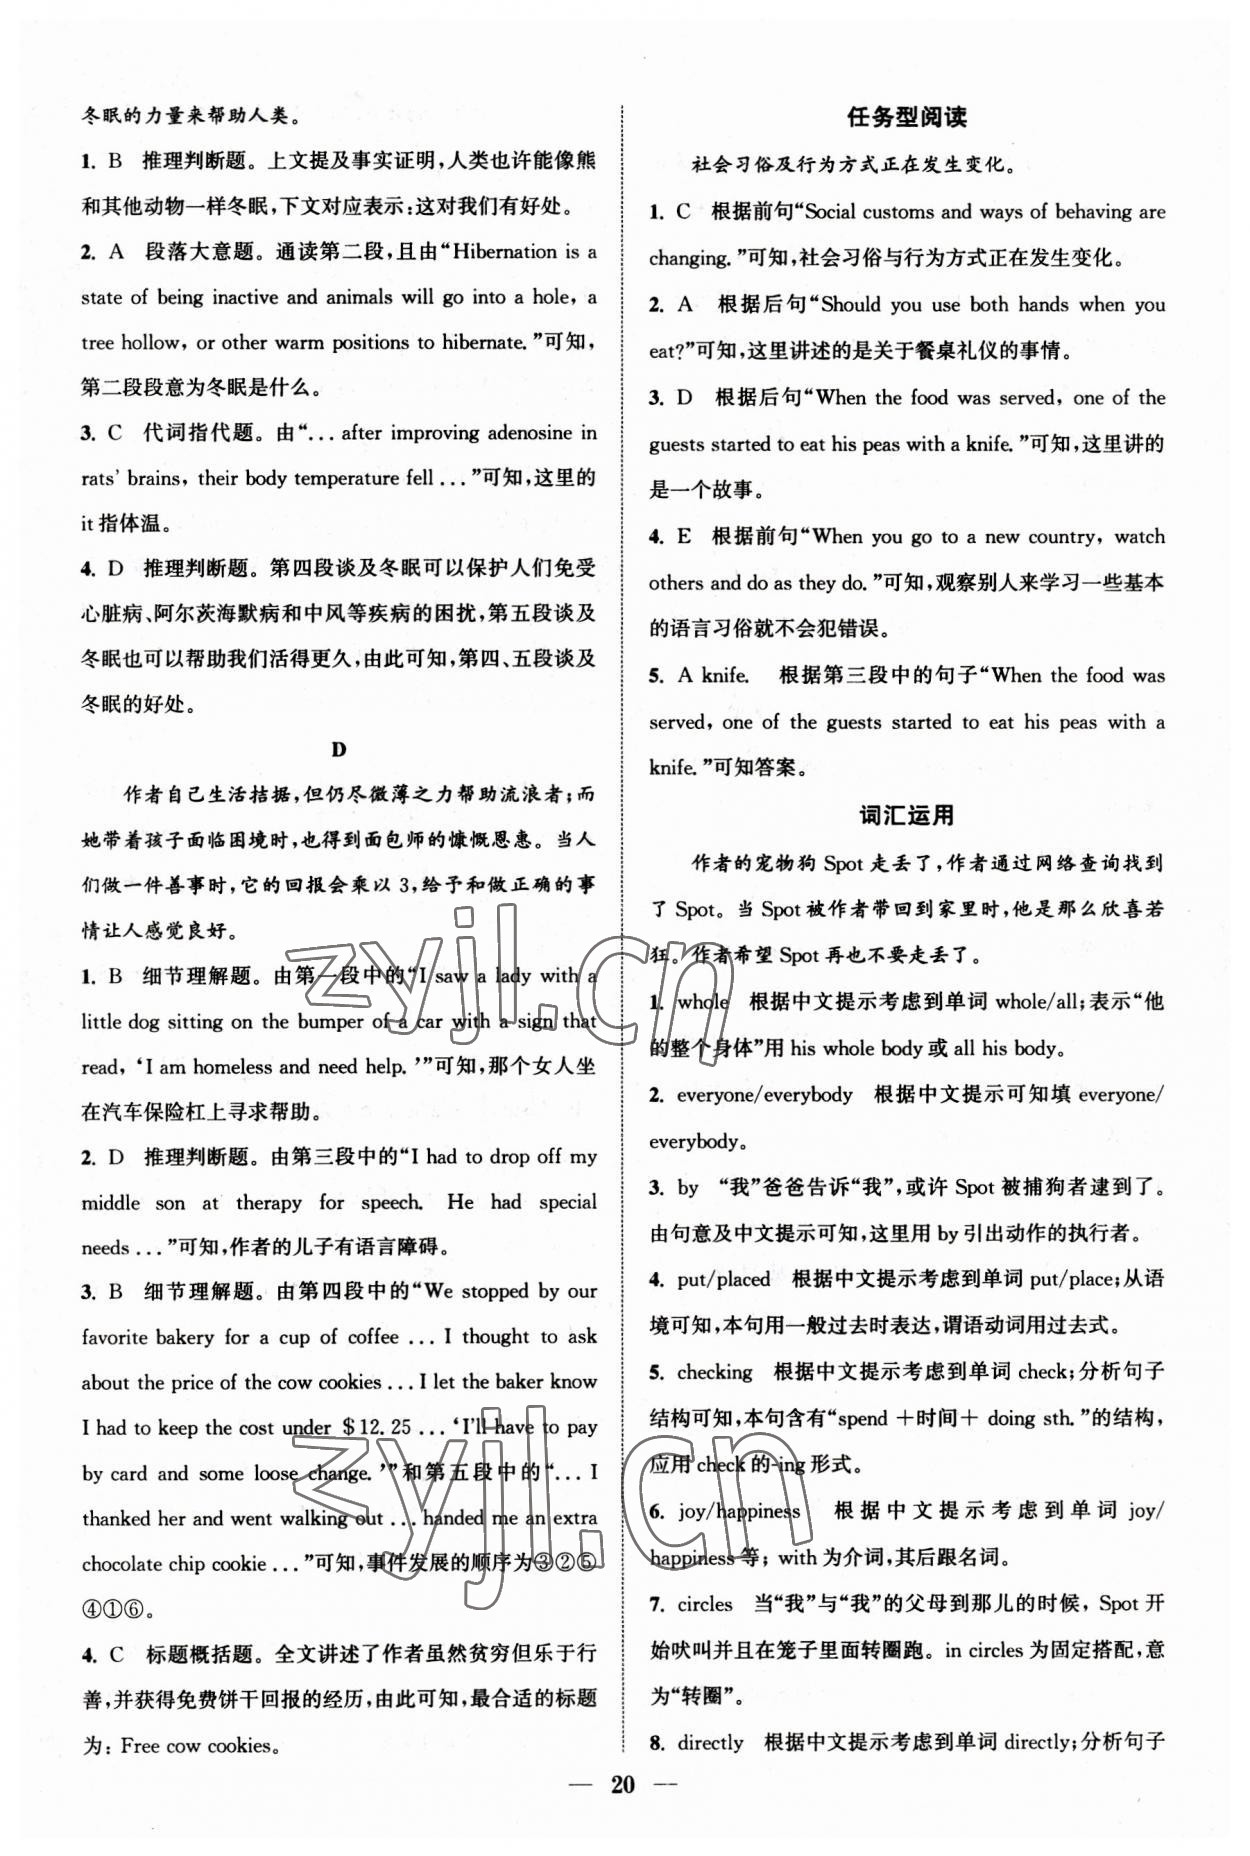 冬眠的力量来帮助人类。
1. B　推理判断题。上文提及事实证明，人类也许能像熊
和其他动物一样冬眠，下文对应表示：这对我们有好处。
2. A　段落大意题。通读第二段，且由“Hibernation is a
state of being inactive and animals will go into a hole, a
tree hollow, or other warm positions to hibernate.”可知，
第二段段意为冬眠是什么。
3. C　代词指代题。由“... after improving adenosine in
rats’ brains, their body temperature fell ...”可知，这里的
it 指体温。
4. D　推理判断题。第四段谈及冬眠可以保护人们免受
心脏病、阿尔茨海默病和中风等疾病的困扰，第五段谈及
冬眠也可以帮助我们活得更久，由此可知，第四、五段谈及
冬眠的好处。
D
作者自己生活拮据，但仍尽微薄之力帮助流浪者；而
她带着孩子面临困境时，也得到面包师的慷慨恩惠。当人
们做一件善事时，它的回报会乘以 3，给予和做正确的事
情让人感觉良好。
1. B　细节理解题。由第一段中的“I saw a lady with a
little dog sitting on the bumper of a car with a sign that
read, ‘I am homeless and need help.’”可知，那个女人坐
在汽车保险杠上寻求帮助。
2. D　推理判断题。由第三段中的“I had to drop off my
middle son at therapy for speech. He had special
needs ...”可知，作者的儿子有语言障碍。
3. B　细节理解题。由第四段中的“We stopped by our
favorite bakery for a cup of coffee ... I thought to ask
about the price of the cow cookies ... I let the baker know
I had to keep the cost under ＄12.25 ... ‘I’ll have to pay
by card and some loose change.’”和第五段中的“... I
thanked her and went walking out ... handed me an extra
chocolate chip cookie ...”可知，事件发展的顺序为③②⑤
④①⑥。
4. C　标题概括题。全文讲述了作者虽然贫穷但乐于行
善，并获得免费饼干回报的经历，由此可知，最合适的标题
为：Free cow cookies。
任务型阅读
社会习俗及行为方式正在发生变化。
1. C　根据前句“Social customs and ways of behaving are
changing.”可知，社会习俗与行为方式正在发生变化。
2. A　根据后句“Should you use both hands when you
eat?”可知，这里讲述的是关于餐桌礼仪的事情。
3. D　根据后句“When the food was served, one of the
guests started to eat his peas with a knife.”可知，这里讲的
是一个故事。
4. E　根据前句“When you go to a new country, watch
others and do as they do.”可知，观察别人来学习一些基本
的语言习俗就不会犯错误。
5. A knife.　根据第三段中的句子“When the food was
served, one of the guests started to eat his peas with a
knife.”可知答案。
词汇运用
作者的宠物狗 Spot 走丢了，作者通过网络查询找到
了 Spot。当 Spot 被作者带回到家里时，他是那么欣喜若
狂。作者希望 Spot 再也不要走丢了。
1. whole　根据中文提示考虑到单词 whole/all；表示“他
的整个身体”用 his whole body 或 all his body。
2. everyone/everybody　根据中文提示可知填 everyone/
everybody。
3. by　“我”爸爸告诉“我”，或许 Spot 被捕狗者逮到了。
由句意及中文提示可知，这里用 by 引出动作的执行者。
4. put/placed　根据中文提示考虑到单词 put/place；从语
境可知，本句用一般过去时表达，谓语动词用过去式。
5. checking　根据中文提示考虑到单词 check；分析句子
结构可知，本句含有“spend ＋时间＋ doing sth.”的结构，
应用 check 的-ing 形式。
6. joy/happiness　根据中文提示考虑到单词 joy/
happiness 等；with 为介词，其后跟名词。
7. circles　当“我”与“我”的父母到那儿的时候，Spot 开
始吠叫并且在笼子里面转圈跑。in circles 为固定搭配，意
为“转圈”。
8. directly　根据中文提示考虑到单词 directly；分析句子
— 20 —
zyjl.cn
zyjl.cn